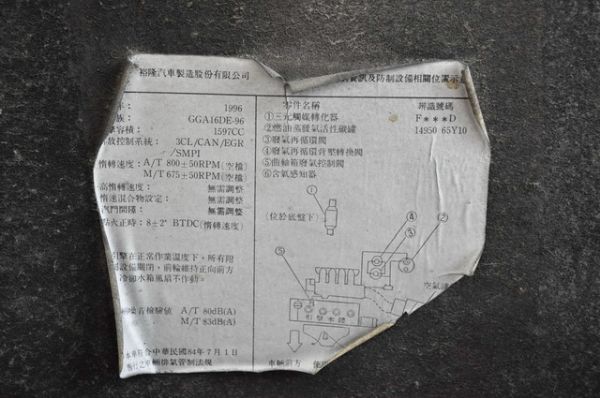 裕隆汽車製造股份有限公司
資訊及防制設備相關位置示
1996
GGA16DE-96
容積: 1597CC
控制系統: 3CL/CAN/EGR
/SMPI
惰轉速度: A/T 800±50RPM(空檔)
M/T 675±50RPM(空檔)
高惰轉速度: 無需調整
惰速混合物設定: 無需調整
汽門間隙: 無需調整
點火正時: 8±2° BTDC(惰轉速度)
引擎在正常作業溫度下,所有附
設備關閉,前輪維持正向前方
冷卻水箱風扇不作動。
噪音檢驗值 A/T 80dB(A)
M/T 83dB(A)
本車符合中華民國84年7月1日
施行之車輛排氣管制法規
零件名稱 辨識號碼
①三元觸媒轉化器 F***D
②燃油蒸發氣活性碳罐 14950 65Y10
③廢氣再循環閥
④廢氣再循環背壓轉換閥
⑤曲軸箱廢氣控制閥
⑥含氧感知器
①
(位於底盤下)
④
③
②
⑤
空氣濾
引擎本體
車輛前方